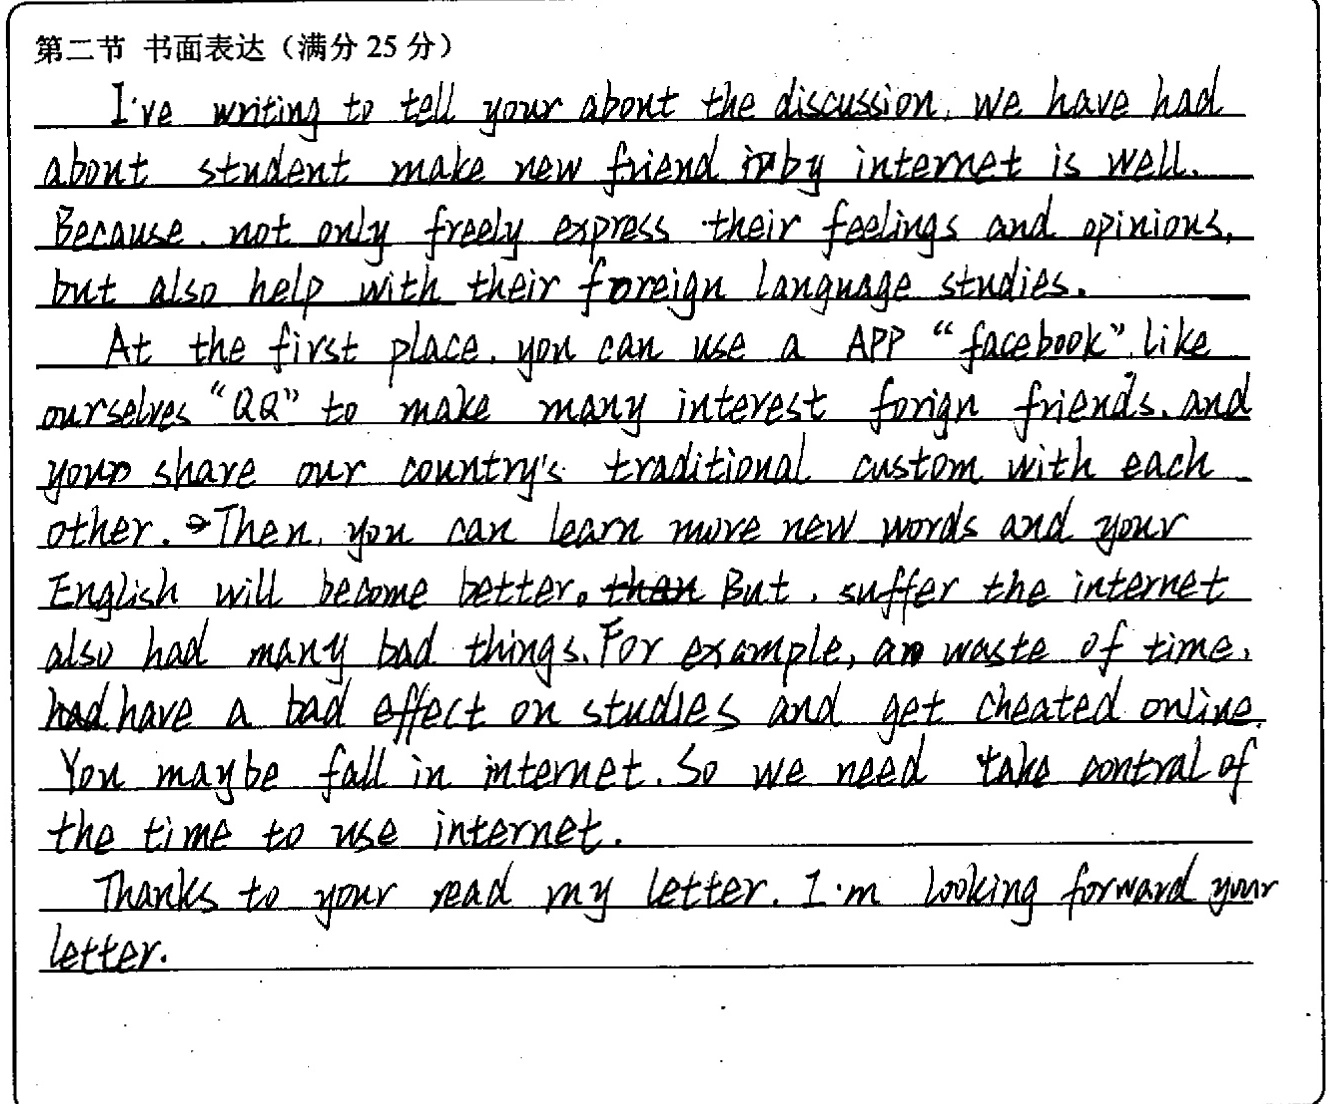 第二节 书面表达（满分 25 分）
I've writing to tell your about the discussion. we have had
about student make new friend by internet is well.
Because. not only freely express their feelings and opinions,
but also help with their foreign language studies.
At the first place. you can use a APP "facebook" like
ourselves "QQ" to make many interest forign friends. and
your share our country's traditional custom with each
other. Then. you can learn more new words and your
English will become better. But. suffer the internet
also had many bad things. For example, an waste of time,
have a bad effect on studies and get cheated online.
You maybe fall in internet. So we need take contral of
the time to use internet.
Thanks to your read my letter. I'm looking forward your
letter.